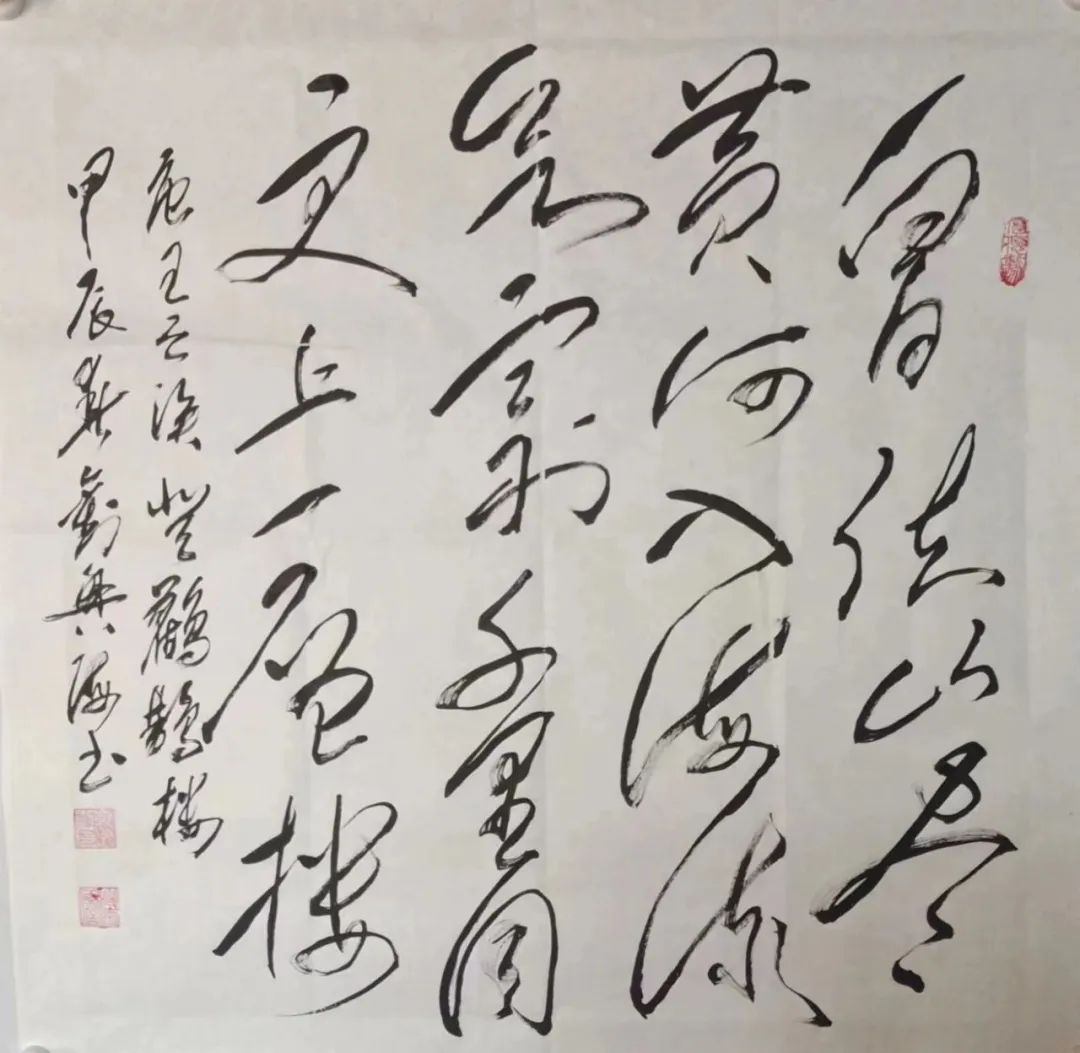 白日依山尽
黄河入海流
欲窮千里目
更上一層楼
唐王之涣登鸛鵲楼
甲辰劉興海书